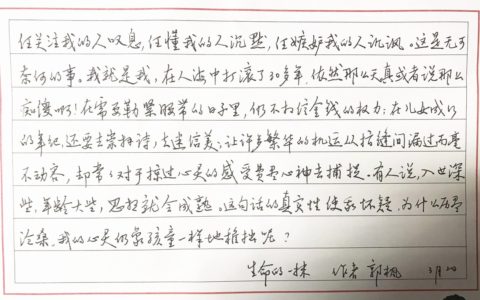 任关注我的人叹息,任懂我的人沉默,任嫉妒我的人讥讽。这是无可
奈何的事。我就是我,在人海中打滚了30多年,依然那么天真或者说那么
痴傻啊!在需要勒紧腰带的日子里,仍不相信金钱的权力;在儿女成行
的年纪,还要去崇拜诗,去迷信美;让许多繁华的机运从指缝间漏过而毫
不动容,却常常对于掠过心灵的感受费尽心神去捕捉。有人说,入世深
些,年龄大些,思想就会成熟。这句话的真实性使我怀疑,为什么历尽
沧桑,我的心灵仍象孩童一样地稚拙呢?
生命的一抹 作者 郭枫 3月20